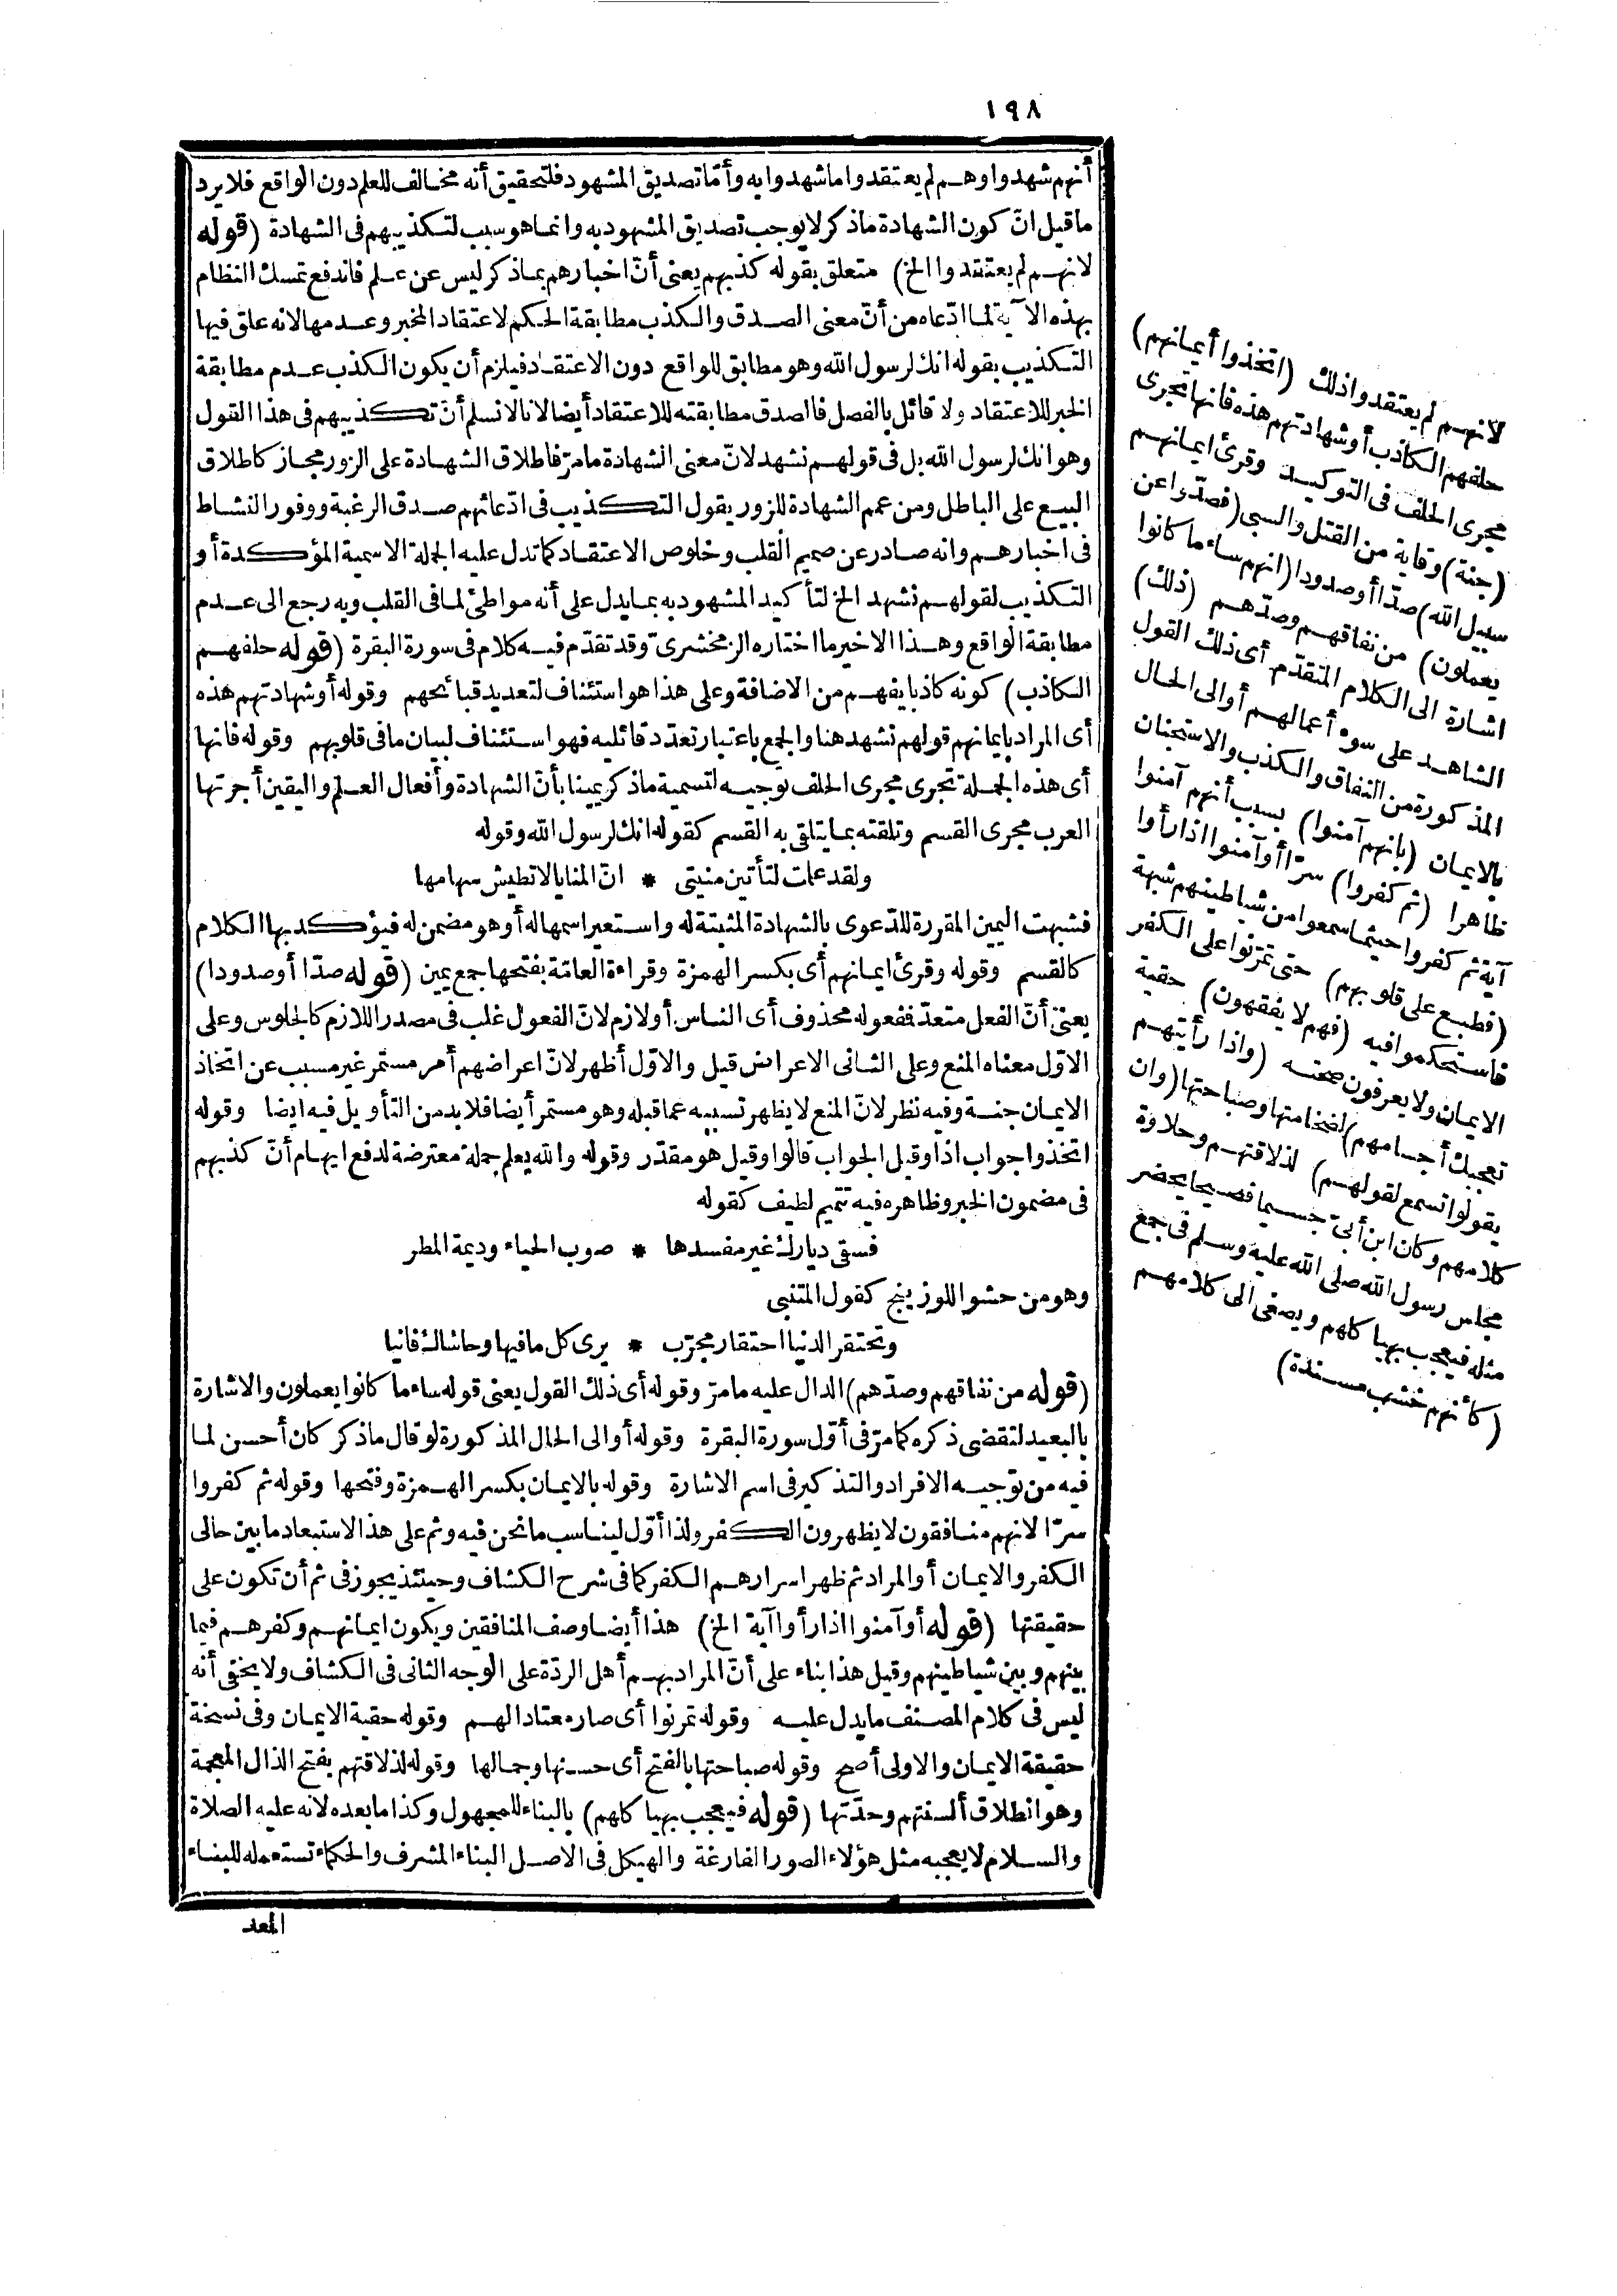 ١٩٨
أنهم شهدوا وهم لم يعتقدوا ما شهدوا به وأمّا تصديق المشهود فلتحقيق أنه مخالف للعلم دون الواقع فلا يرد
ما قيل انّ كون الشهادة ما ذكر لا يوجب تصديق المشهود به وانما هو سبب لتكذيبهم فى الشهادة (قوله
لانهم لم يعتقدوا الخ) متعلق بقوله كذبهم يعنى أنّ اخبارهم بما ذكر ليس عن علم فاندفع تمسك النظام
بهذه الآية لما ادّعاه من أنّ معنى الصدق والكذب مطابقة الحكم لاعتقاد المخبر وعدمها لانه علق فيها
التكذيب بقوله انك لرسول الله وهو مطابق للواقع دون الاعتقاد فيلزم أن يكون الكذب عدم مطابقة
الخبر للاعتقاد ولا قائل بالفصل فالصدق مطابقته للاعتقاد أيضا لانا لا نسلم أنّ تكذيبهم فى هذا القول
وهو انك لرسول الله بل فى قولهم نشهد لانّ معنى الشهادة ما مرّ فاطلاق الشهادة على الزور مجاز كاطلاق
البيع على الباطل ومن عمم الشهادة للزور يقول التكذيب فى ادّعائهم صدق الرغبة ووفور النشاط
فى اخبارهم وانه صادر عن صميم القلب وخلوص الاعتقاد كما تدل عليه الجملة الاسمية المؤكدة أو
التكذيب لقولهم نشهد الخ لتأكيد المشهود به بما يدل على أنه مواطئ لما فى القلب وبه رجع الى عدم
مطابقة الواقع وهذا الاخير ما اختاره الزمخشرىّ وقد تقدّم فيه كلام فى سورة البقرة (قوله حلفهم
الكاذب) كونه كاذبا يفهم من الاضافة وعلى هذا هو استئناف لتعديد قبائحهم وقوله أو شهادتهم هذه
أى المراد بايمانهم قولهم نشهد هنا والجمع باعتبار تعدّد قائليه فهو استئناف لبيان ما فى قلوبهم وقوله فانها
أى هذه الجملة تجرى مجرى الحلف توجيه لتسمية ما ذكر يمينا بأنّ الشهادة وأفعال العلم واليقين أجرتها
العرب مجرى القسم وتلقته بما يتلقى به القسم كقوله انك لرسول الله وقوله
ولقد علمت لتأتين منيتى * انّ المنايا لا تطيش سهامها
فشبهت اليمين المقررة للدّعوى بالشهادة المثبتة له واستعير اسمها له أو هو مضمن له فيؤكد بها الكلام
كالقسم وقوله وقرئ ايمانهم أى بكسر الهمزة وقراءة العامّة بفتحها جمع يمين (قوله صدّا أو صدودا)
يعنى أنّ الفعل متعدّ فمفعوله محذوف أى الناس أو لازم لانّ الفعول غلب فى مصدر اللازم كالجلوس وعلى
الاوّل معناه المنع وعلى الثانى الاعراض قيل والاوّل أظهر لانّ اعراضهم أمر مستمر غير مسبب عن اتخاذ
الايمان جنة وفيه نظر لانّ المنع لا يظهر تسببه عما قبله وهو مستمر أيضا فلابد من التأويل فيه ايضا وقوله
اتخذوا جواب اذا وقيل الجواب قالوا وقيل هو مقدّر وقوله والله يعلم جملة معترضة لدفع ايهام أنّ كذبهم
فى مضمون الخبر وظاهره فيه تتميم لطيف كقوله
فسقى ديارك غير مفسدها * صوب الحياء وديمة المطر
وهو من حشو اللوزينج كقول المتنبى
وتحتقر الدنيا احتقار مجرّب * يرى كل ما فيها وحاشاك فانيا
(قوله من نفاقهم وصدّهم) الدال عليه ما مرّ وقوله أى ذلك القول يعنى قوله ساء ما كانوا يعملون والاشارة
بالبعيد لتقضى ذكره كما مرّ فى أوّل سورة البقرة وقوله أو الى الحال المذكورة لو قال ما ذكر كان أحسن لما
فيه من توجيه الافراد والتذكير فى اسم الاشارة وقوله بالايمان بكسر الهمزة وفتحها وقوله ثم كفروا
سرّا لانهم منافقون لا يظهرون الكفر ولذا أوّل ليناسب ما نحن فيه وثم على هذا الاستبعاد ما بين حالى
الكفر والايمان أو المراد ثم ظهر اسرارهم الكفر كما فى شرح الكشاف وحينئذ يجوز فى ثم أن تكون على
حقيقتها (قوله أو آمنوا اذا رأوا آية الخ) هذا أيضا وصف المنافقين ويكون ايمانهم وكفرهم فيما
بينهم وبين شياطينهم وقيل هذا بناء على أنّ المراد بهم أهل الردّة على الوجه الثانى فى الكشاف ولا يخفى أنه
ليس فى كلام المصنف ما يدل عليه وقوله تمرنوا أى صار معتادا لهم وقوله حقية الايمان وفى نسخة
حقيقة الايمان والاولى أصح وقوله صباحتها بالفتح أى حسنها وجمالها وقوله لذلاقتهم بفتح الذال المعجمة
وهو انطلاق ألسنتهم وحدّتها (قوله فيعجب بهياكلهم) بالبناء للمجهول وكذا ما بعده لانه عليه الصلاة
والسلام لا يعجبه مثل هؤلاء الصور الفارغة والهيكل فى الاصل البناء المشرف والحكماء تستعمله للبناء
المعد
لانهم لم يعتقدوا ذلك (اتخذوا أيمانهم)
حلفهم الكاذب أو شهادتهم هذه فانها تجرى
مجرى الحلف فى التوكيد وقرئ ايمانهم
(جنة) وقاية من القتل والسبى (فصدّوا عن
سبيل الله) صدّا أو صدودا (انهم ساء ما كانوا
يعملون) من نفاقهم وصدّهم (ذلك)
اشارة الى الكلام المتقدّم أى ذلك القول
الشاهد على سوء أعمالهم أو الى الحال
المذكورة من النفاق والكذب والاستجنان
بالايمان (بانهم آمنوا) بسبب أنهم آمنوا
ظاهرا (ثم كفروا) سرّا أو آمنوا اذا رأوا
آية ثم كفروا حيثما سمعوا من شياطينهم شبهة
(فطبع على قلوبهم) حتى تمرّنوا على الكفر
فاستحكموا فيه (فهم لا يفقهون) حقية
الايمان ولا يعرفون صحته (واذا رأيتهم
تعجبك أجسامهم) لضخامتها وصباحتها (وان
يقولوا تسمع لقولهم) لذلاقتهم وحلاوة
كلامهم وكان ابن أبىّ جسيما فصيحا يحضر
مجلس رسول الله صلى الله عليه وسلم فى جمع
مثله فيعجب بهياكلهم ويصغى الى كلامهم
(كأنهم خشب مسندة)